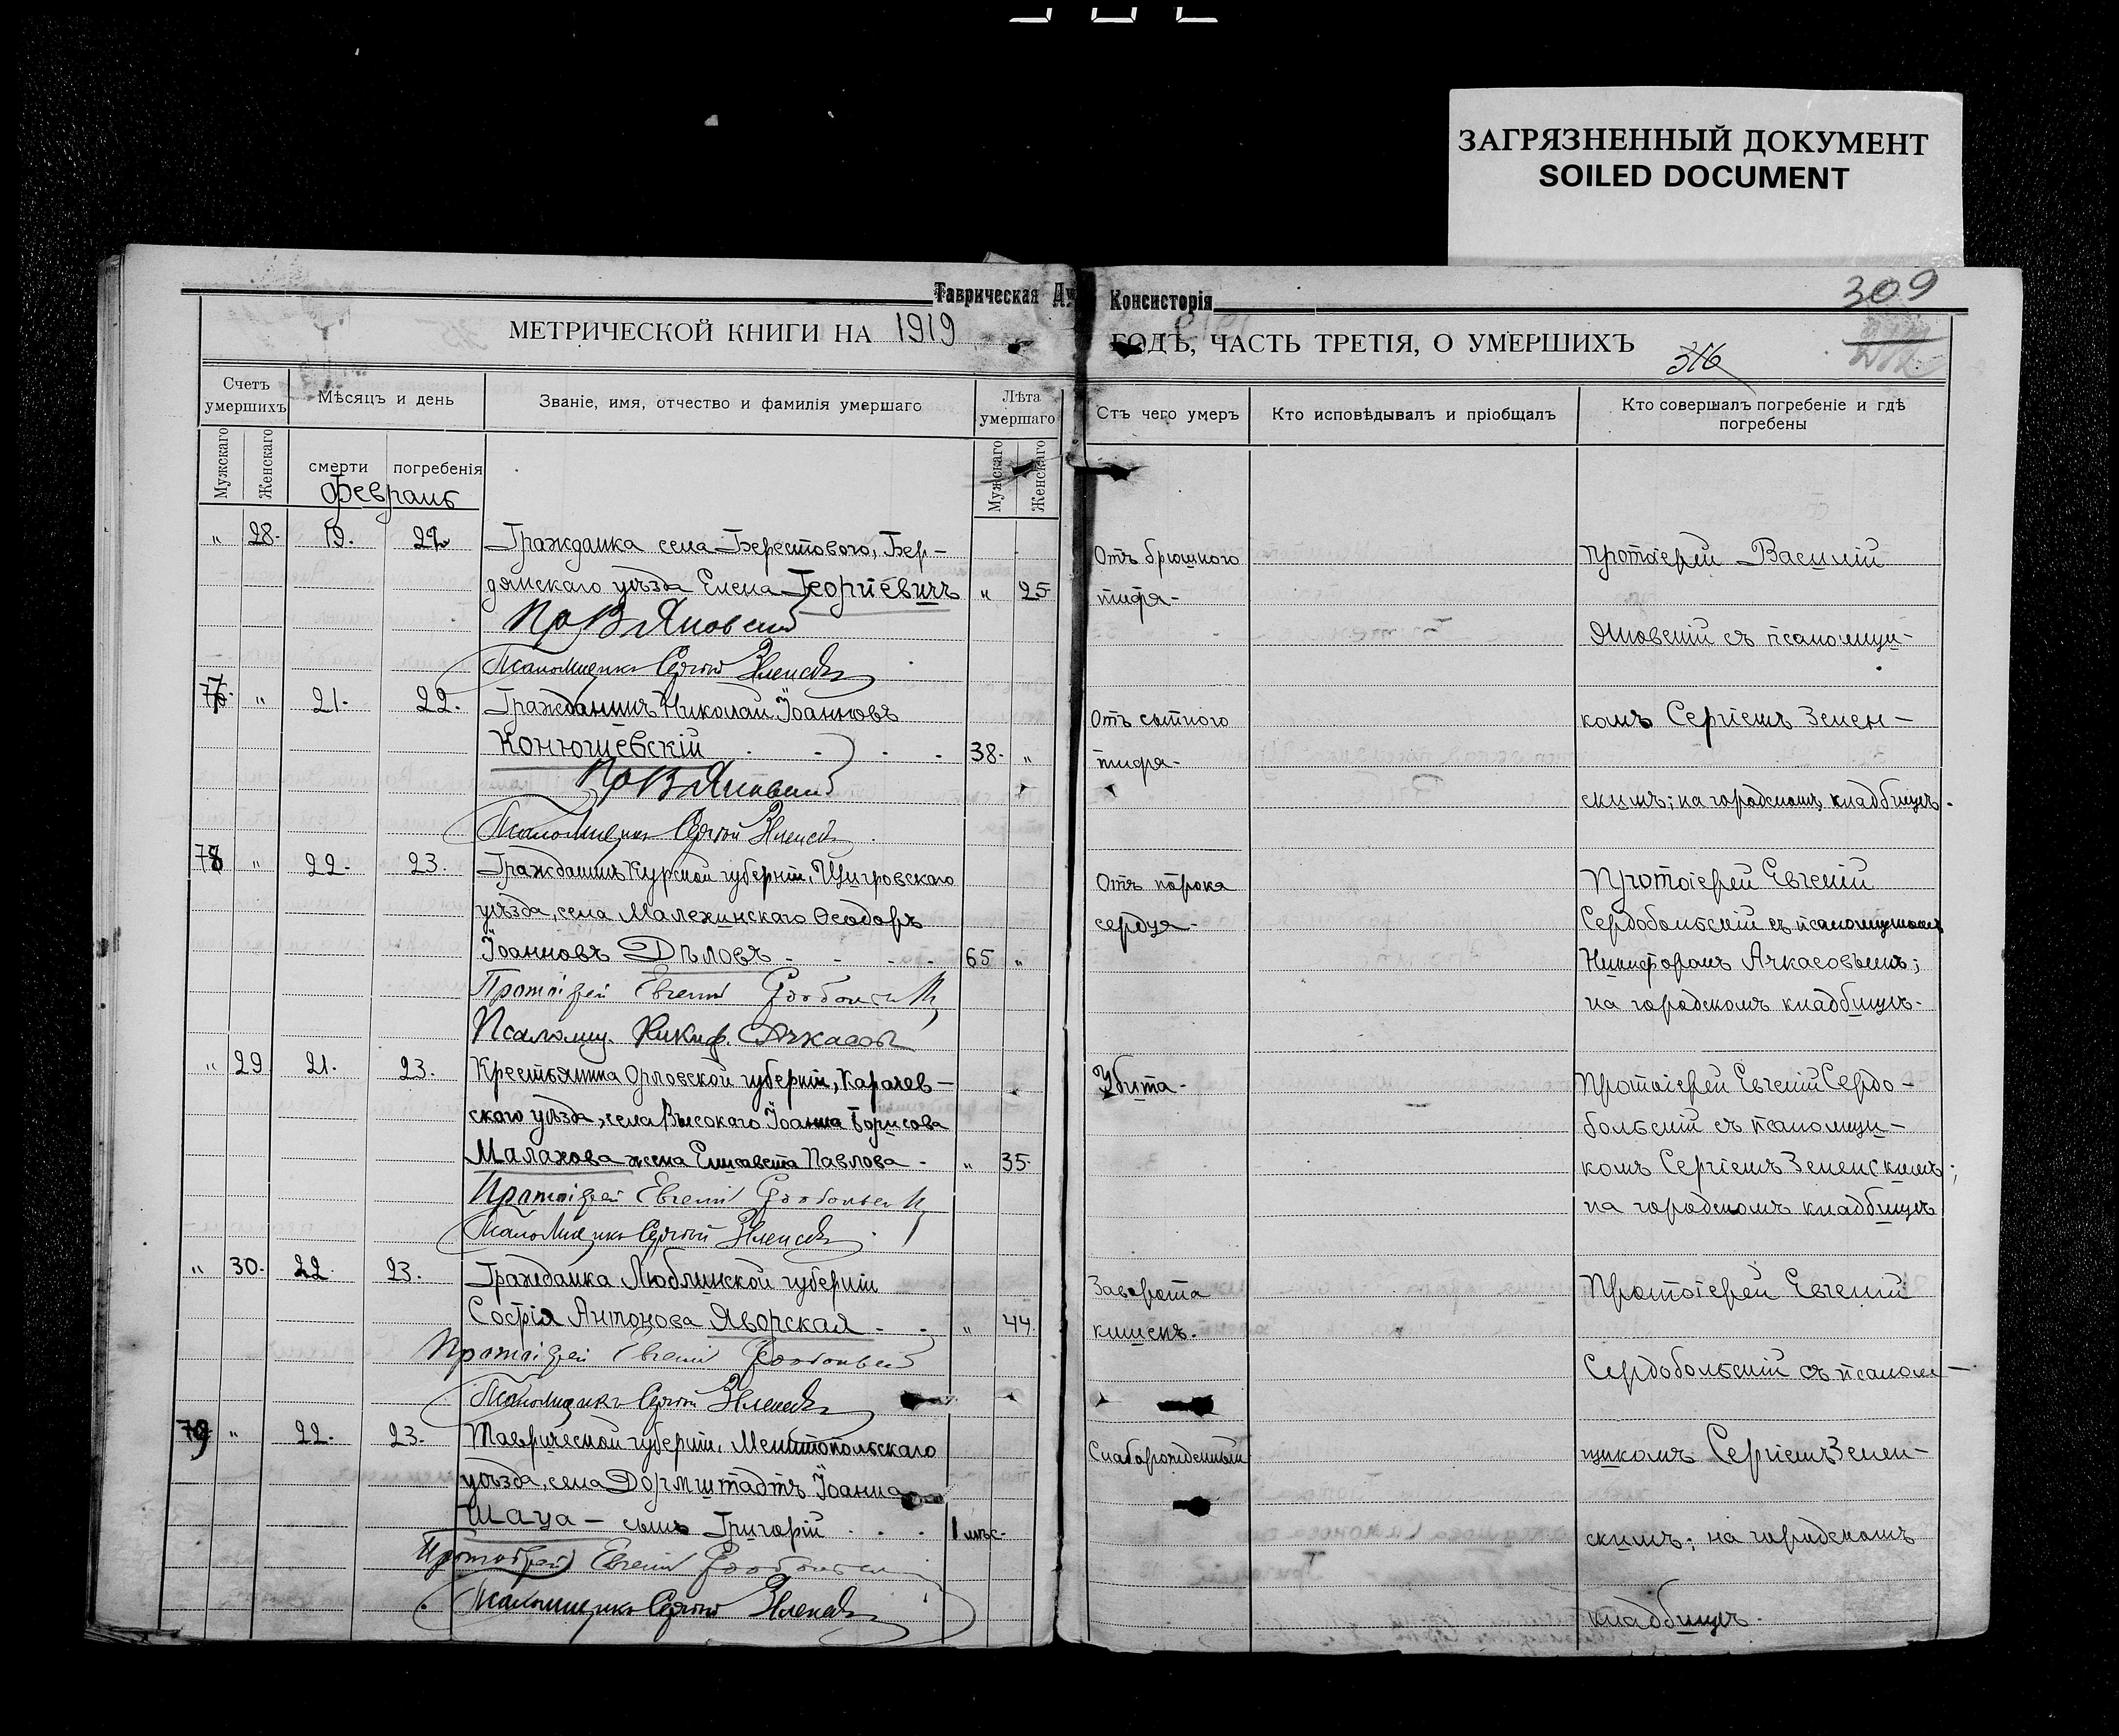 ЗАГРЯЗНЕННЫЙ ДОКУМЕНТ
SOILED DOCUMENT
Таврическая Ду
МЕТРИЧЕСКОЙ КНИГИ НА 1919
Счетъ умершихъ
Мѣсяцъ и день
Званіе, имя, отчество и фамилія умершаго
Лѣта умершаго
Мужскаго
Женскаго
смерти
погребенія
Мужскаго
Женскаго
Февраль
„ 28. 19. 22 Гражданка села Берестового, Бер-
дянскаго уѣзда Елена Георгіевичъ „ 25
Пр. В Яновскій
Псаломщикъ Сергій Зеленскій
77. „ 21. 22. Гражданинъ Николай Іоанновъ
Конюшевскій 38. „
Пр. В Яновскій
Псаломщикъ Сергій Зеленскій
78 „ 22. 23. Гражданинъ Курской губерніи, Щигровскаго
уѣзда, села Малехинскаго Ѳеодоръ
Іоанновъ Дѣловъ 65 „
Протоіерей Евгеній Сердобольскій
Псаломщ. Никиф. Ачкасовъ
„ 29 21. 23. Крестьянина Орловской губерніи, Карачев-
скаго уѣзда, села Высокаго Іоанна Борисова
Малахова жена Елисавета Павлова „ 35.
Протоіерей Евгеній Сердобольскій
Псаломщикъ Сергій Зеленскій
„ 30. 22. 23. Гражданка Люблинской губерніи
Софія Антонова Яворская „ 44.
Протоіерей Евгеній Сердобольскій
Псаломщикъ Сергій Зеленскій
79 „ 22. 23. Таврической губерніи, Мелитопольскаго
уѣзда, села Дормштадтъ Іоанна
Шауа - сынъ Григорій 1 мѣс.
Протоіерей Евгеній Сердобольскій
Псаломщикъ Сергій Зеленскій
Консисторія
309
ГОДЪ, ЧАСТЬ ТРЕТІЯ, О УМЕРШИХЪ
316
Отъ чего умеръ
Кто исповѣдывалъ и пріобщалъ
Кто совершалъ погребеніе и гдѣ погребены
Отъ брюшного
тифа-
Протоіерей Василій
Яновскій съ псаломщи-
Отъ сыпного
тифа-
комъ Сергіемъ Зелен-
скимъ; на городскомъ кладбищѣ.
Отъ порока
сердца-
Протоіерей Евгеній
Сердобольскій съ псаломщикомъ
Никифоромъ Ачкасовымъ;
на городскомъ кладбищѣ.
Убита-
Протоіерей Евгеній Сердо-
больскій съ псаломщи-
комъ Сергіемъ Зеленскимъ;
на городскомъ кладбищѣ
Заворота
кишекъ.
Протоіерей Евгеній
Сердобольскій съ псалом-
Слаборожденный
щикомъ Сергіемъ Зелен-
скимъ; на городскомъ
кладбищѣ.